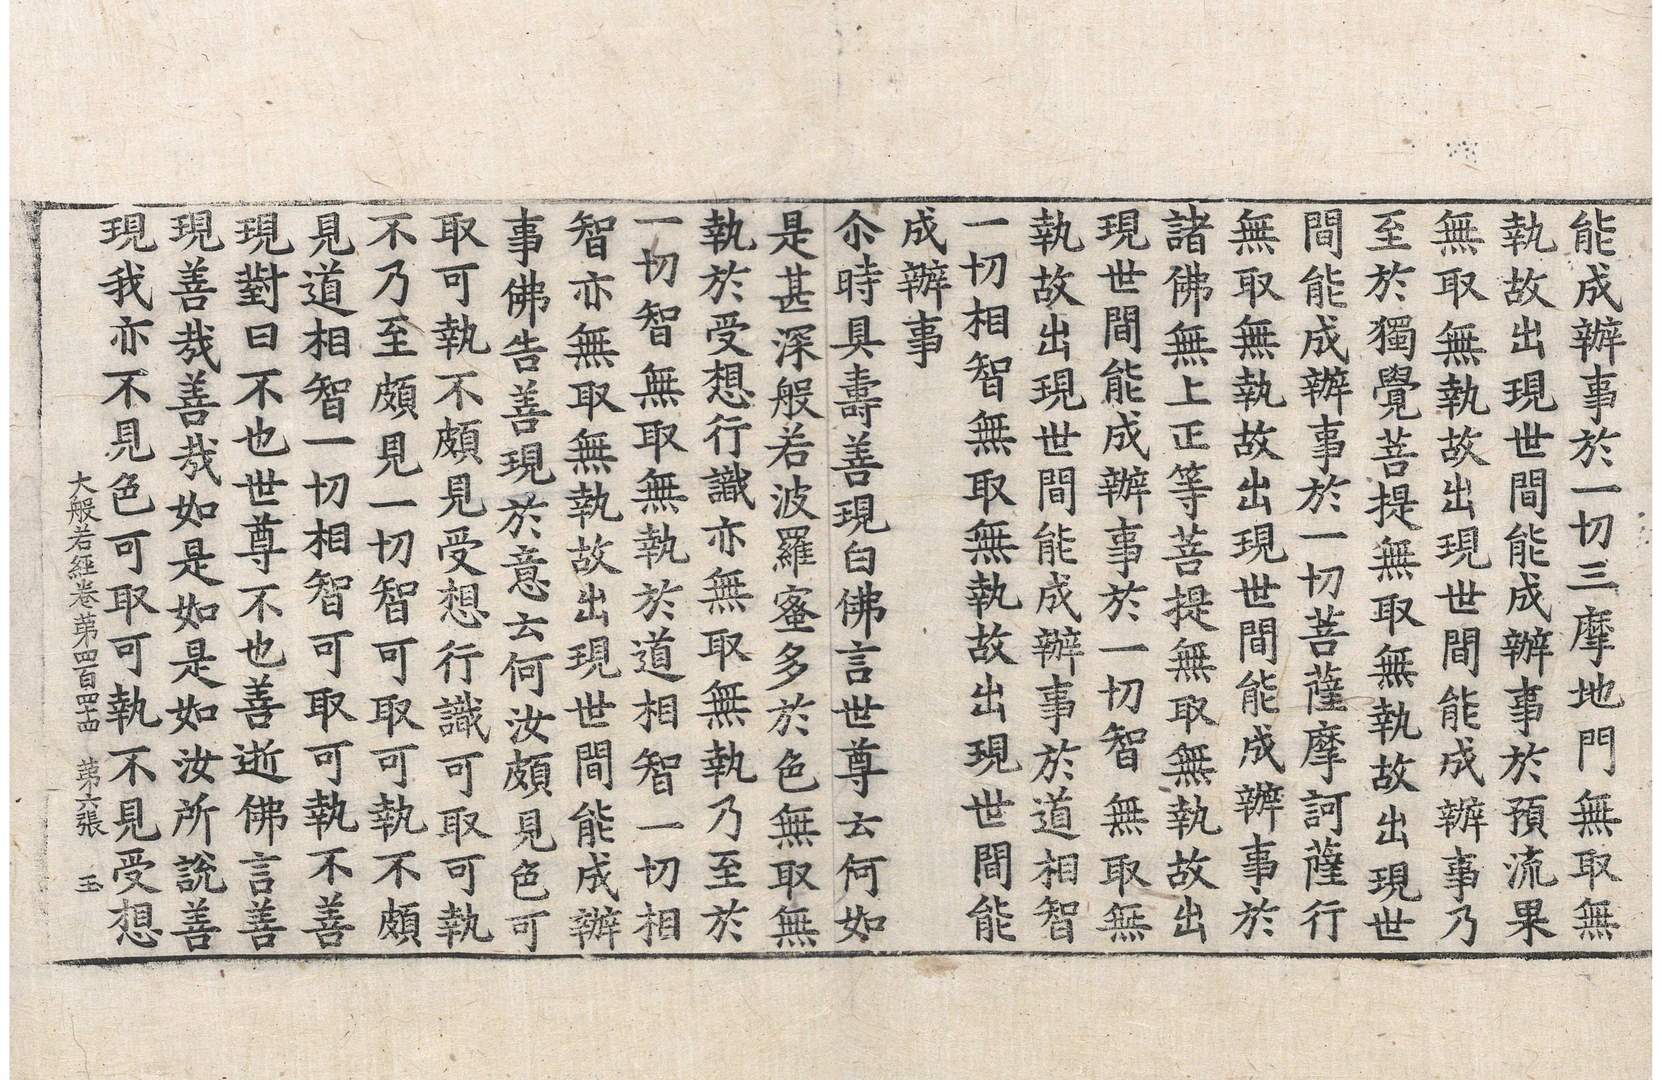 能成辦事於一切三摩地門無取無
執故出現世間能成辦事於預流果
無取無執故出現世間能成辦事乃
至於獨覺菩提無取無執故出現世
間能成辦事於一切菩薩摩訶薩行
無取無執故出現世間能成辦事於
諸佛無上正等菩提無取無執故出
現世間能成辦事於一切智無取無
執故出現世間能成辦事於道相智
一切相智無取無執故出現世間能
成辦事
尒時具壽善現白佛言世尊云何如
是甚深般若波羅蜜多於色無取無
執於受想行識亦無取無執乃至於
一切智無取無執於道相智一切相
智亦無取無執故出現世間能成辦
事佛告善現於意云何汝頗見色可
取可執不頗見受想行識可取可執
不乃至頗見一切智可取可執不頗
見道相智一切相智可取可執不善
現對曰不也世尊不也善逝佛言善
現善哉善哉如是如是如汝所說善
現我亦不見色可取可執不見受想
大般若經卷苐四百四十四 苐六張 玉